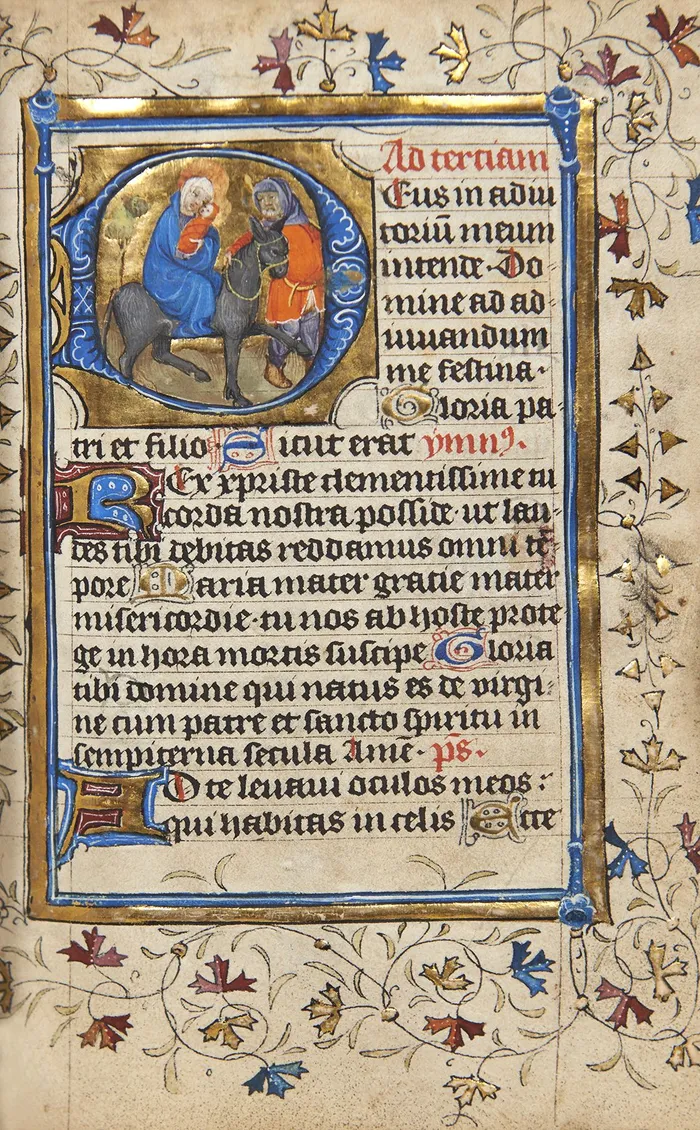 Ad terciam
Deus in adiu
toriū meum
intende · Do
mine ad ad
iuuandum
me festina ·
Gloria pa-
tri et filio Sicut erat ymnꝰ.
Rex xpriste clementissime tu
corda nostra posside · ut lau-
des tibi debitas reddamus omni tē
pore Maria mater gratie mater
misericordie · tu nos ab hoste prote
ge in hora mortis suscipe Gloria
tibi domine qui natus es de virgi-
ne cum patre et sancto spiritu in
sempiterna secula Amē · p̄s ·
AD te leuaui oculos meos :
qui habitas in celis Ecce